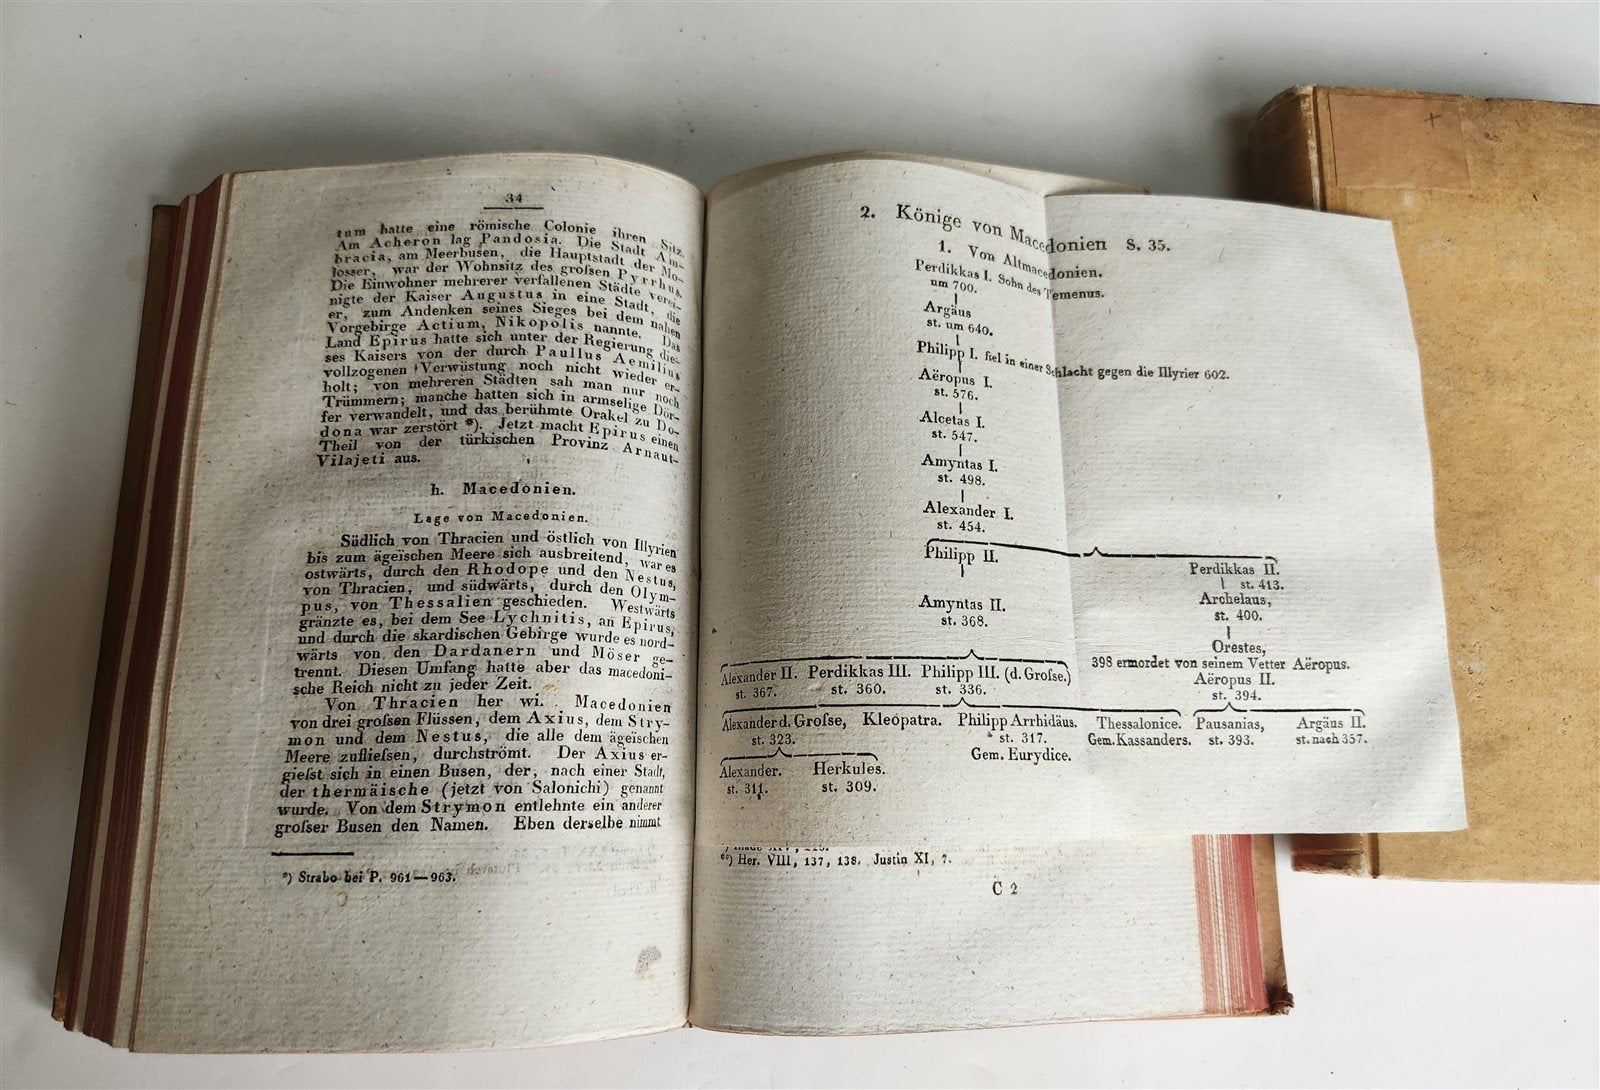 34
tum hatte eine römische Colonie ihren Sitz.
Am Acheron lag Pandosia. Die Stadt Am-
bracia, am Meerbusen, die Hauptstadt der Mo-
losser, war der Wohnsitz des groſsen Pyrrhus.
Die Einwohner mehrerer verfallenen Städte verei-
nigte der Kaiser Augustus in eine Stadt, die
er, zum Andenken seines Sieges bei dem nahen
Vorgebirge Actium, Nikopolis nannte. Das
Land Epirus hatte sich unter der Regierung die-
ses Kaisers von der durch Paullus Aemilius
vollzogenen Verwüstung noch nicht wieder er-
holt; von mehreren Städten sah man nur noch
Trümmern; manche hatten sich in armselige Dör-
fer verwandelt, und das berühmte Orakel zu Do-
dona war zerstört *). Jetzt macht Epirus einen
Theil von der türkischen Provinz Arnaut-
Vilajeti aus.
h. Macedonien.
Lage von Macedonien.
Südlich von Thracien und östlich von Illyrien
bis zum ägeïschen Meere sich ausbreitend, war es
ostwärts, durch den Rhodope und den Nestus,
von Thracien, und südwärts, durch den Olym-
pus, von Thessalien geschieden. Westwärts
gränzte es, bei dem See Lychnitis, an Epirus,
und durch die skardischen Gebirge wurde es nord-
wärts von den Dardanern und Möser ge-
trennt. Diesen Umfang hatte aber das macedoni-
sche Reich nicht zu jeder Zeit.
Von Thracien her wi. Macedonien
von drei groſsen Flüssen, dem Axius, dem Stry-
mon und dem Nestus, die alle dem ägeïschen
Meere zuflieſsen, durchströmt. Der Axius er-
gieſst sich in einen Busen, der, nach einer Stadt,
der thermäische (jetzt von Salonichi) genannt
wurde. Von dem Strymon entlehnte ein anderer
groſser Busen den Namen. Eben derselbe nimmt
*) Strabo bei P. 961—963.
2. Könige von Macedonien S. 35.
1. Von Altmacedonien.
Perdikkas I. Sohn des Temenus.
um 700.
Argäus
st. um 640.
Philipp I. fiel in einer Schlacht gegen die Illyrier 602.
Aëropus I.
st. 576.
Alcetas I.
st. 547.
Amyntas I.
st. 498.
Alexander I.
st. 454.
Philipp II. Perdikkas II.
st. 413.
Amyntas II. Archelaus,
st. 368. st. 400.
Orestes,
398 ermordet von seinem Vetter Aëropus.
Alexander II. Perdikkas III. Philipp III. (d. Groſse.) Aëropus II.
st. 367. st. 360. st. 336. st. 394.
Alexander d. Groſse, Kleopatra. Philipp Arrhidäus. Thessalonice. Pausanias, Argäus II.
st. 323. st. 317. Gem. Kassanders. st. 393. st. nach 357.
Gem. Eurydice.
Alexander. Herkules.
st. 311. st. 309.
**) Her. VIII, 137, 138. Justin XI, 7.
C 2